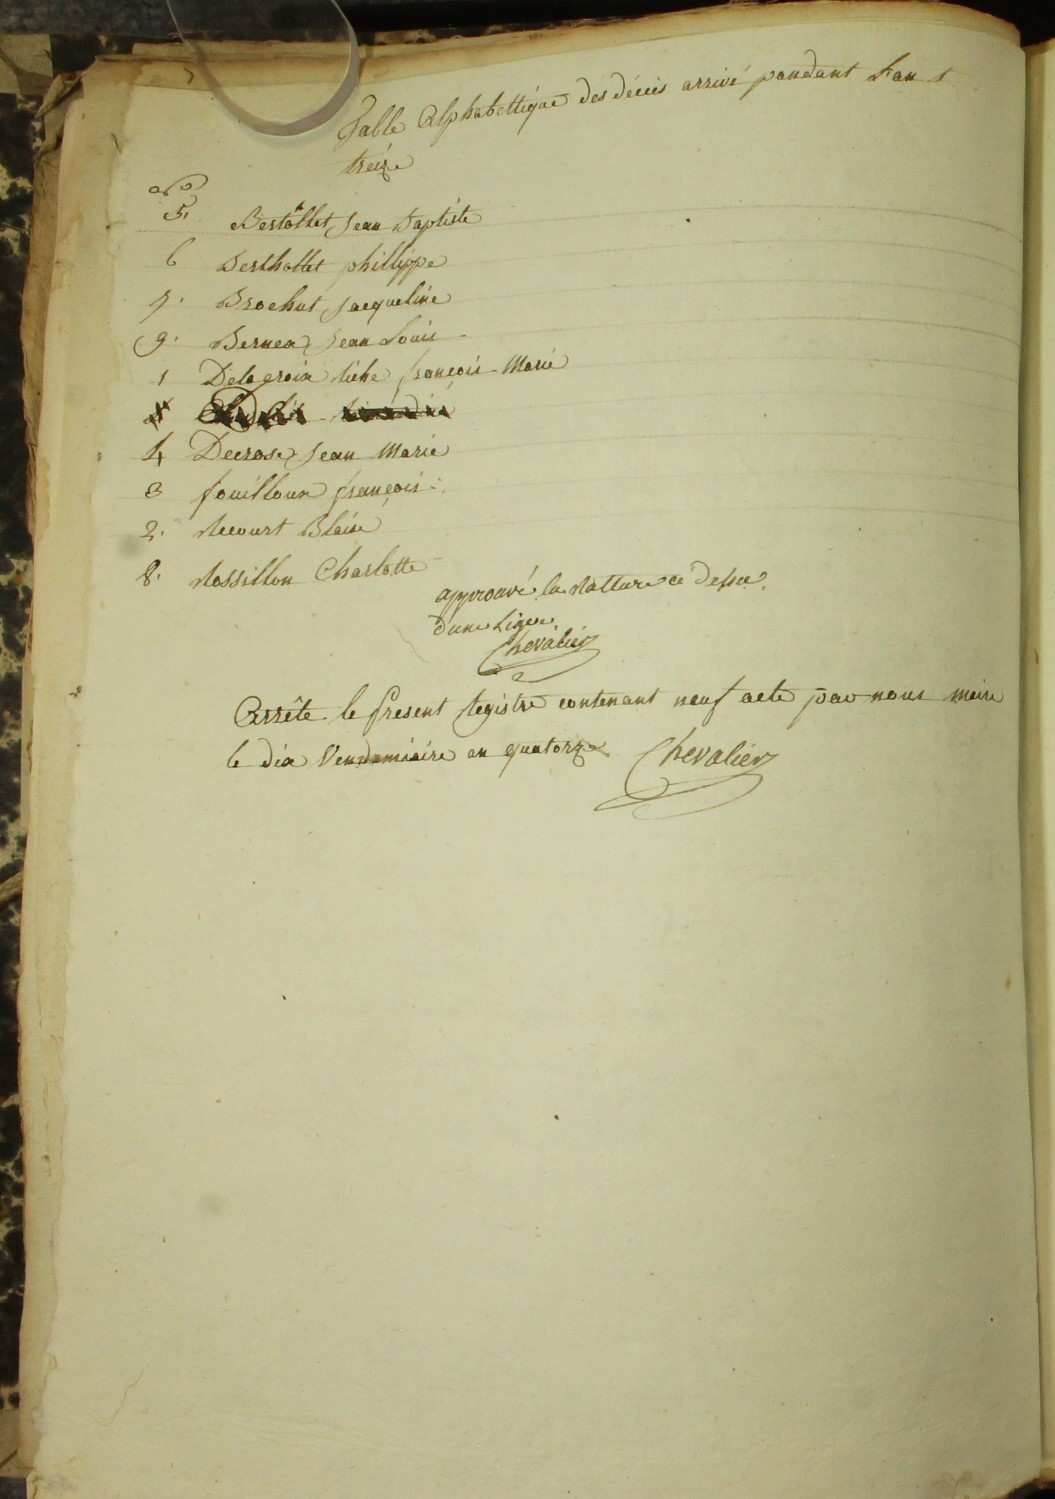 Table Alphabettique des décès arrivé pendant L'an
treize
No
5. Bertollet Jean Baptiste
6 Berthollet phillippe
7. Brochut Jacqueline
9. Bernex Jean Louis
1 Delacroix françois Marie
4 Decrose Jean Marie
3 fouilloux françois
2. Recourt Blaise
8. Rossillon Charlotte
approuvé la Ratture ce dessu
dune Ligne
Chevalier
Arrêté le présent Registre contenant neuf acte par nous maire
le dix Vendemiaire an quatorze Chevalier